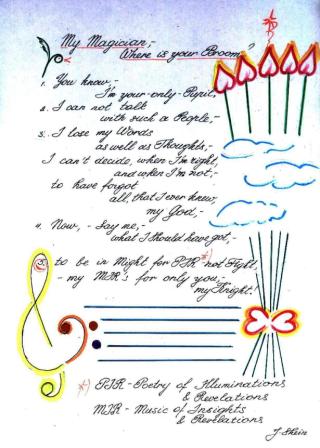 My Magician,-
Where is your Broom?
1. You know,-
I'm your-only-Pupil,-
2. I can not talk
with such a People,-
3. I lose my Words
as well as Thoughts,-
I can't decide, when I'm right,
and when I'm not,-
to have forgot
all, that I ever knew,
my God,-
4. Now, - Say me,-
what I should have got,-
5. to be in Might for PIR *) not Fight,
- my MIR's for only you,-
my Knight!
*) PIR-Poetry of Illuminations
& Revelations
MIR- Music of Insights
& Revelations
J. Shein